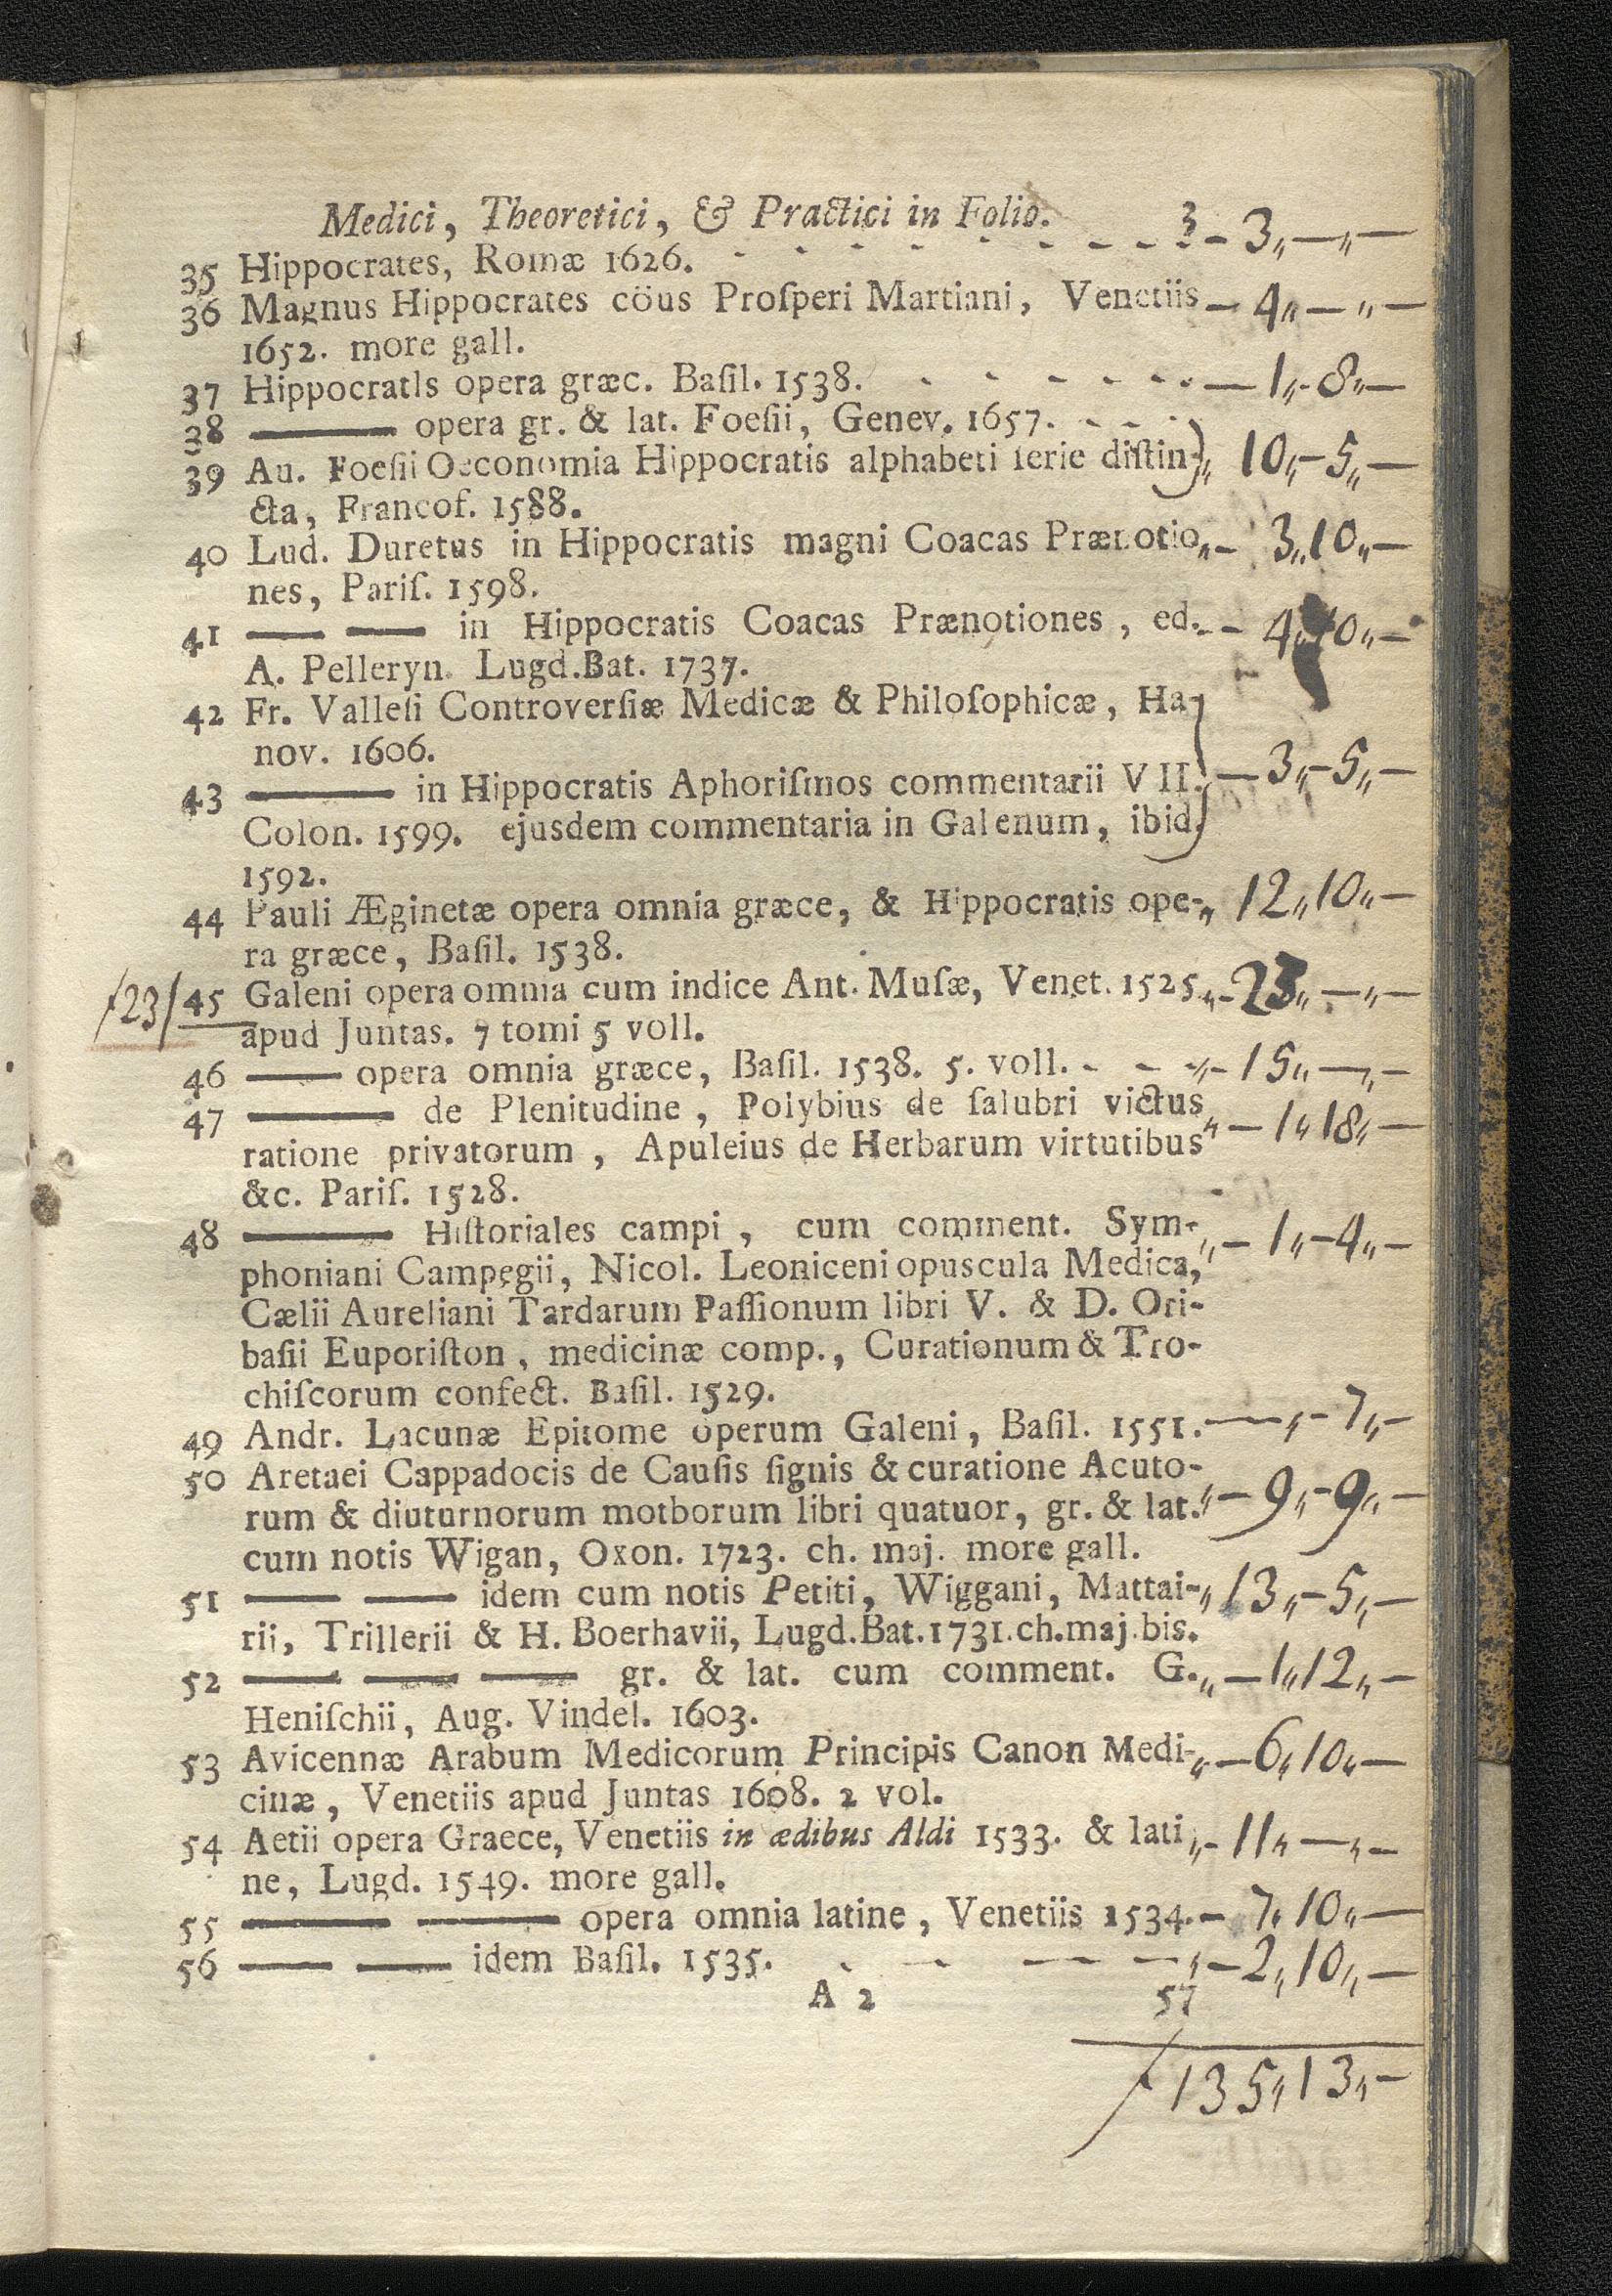 Medici, Theoretici, & Practici in Folio. 3
35 Hippocrates, Romæ 1626. - - - - - - - - - 3„—„—
36 Magnus Hippocrates cöus Proſperi Martiani, Venetiis — 4„—„—
1652. more gall.
37 Hippocratls opera græc. Baſil. 1538. - - - - - - — 1„-8„—
38 ——— opera gr. & lat. Foeſii, Genev. 1657. - - -
39 An. Foeſii Oeconomia Hippocratis alphabeti ſerie diſtin- „ 10„-5„—
cta, Francof. 1588.
40 Lud. Duretus in Hippocratis magni Coacas Prænotio „- 3„10„—
nes, Pariſ. 1598.
41 —— —— in Hippocratis Coacas Prænotiones, ed. - - 4„10„—
A. Pelleryn. Lugd.Bat. 1737.
42 Fr. Valleſi Controverſiæ Medicæ & Philoſophicæ, Ha-
nov. 1606.
43 ——— in Hippocratis Aphoriſmos commentarii VII. — 3„-5„—
Colon. 1599. ejusdem commentaria in Galenum, ibid.
1592.
44 Pauli Æginetæ opera omnia græce, & Hippocratis ope- „ 12„10„—
ra græce, Baſil. 1538.
f23/ 45 Galeni opera omnia cum indice Ant. Muſæ, Venet. 1525 „- 23„—„—
apud Juntas. 7 tomi 5 voll.
46 —— opera omnia græce, Baſil. 1538. 5. voll. - - -„- 15„—„—
47 ——— de Plenitudine, Polybius de ſalubri victus
ratione privatorum, Apuleius de Herbarum virtutibus „— 1„18„—
&c. Pariſ. 1528.
48 ——— Hiſtoriales campi, cum comment. Sym- „— 1„-4„—
phoniani Campegii, Nicol. Leoniceni opuscula Medica,
Cælii Aureliani Tardarum Paſſionum libri V. & D. Ori-
baſii Euporiſton, medicinæ comp., Curationum & Tro-
chiſcorum confect. Baſil. 1529.
49 Andr. Lacunæ Epitome operum Galeni, Baſil. 1551. —„- 7„—
50 Aretaei Cappadocis de Cauſis ſignis & curatione Acuto-
rum & diuturnorum motborum libri quatuor, gr. & lat. „— 9„-9„—
cum notis Wigan, Oxon. 1723. ch. maj. more gall.
51 —— —— idem cum notis Petiti, Wiggani, Mattai- „ 13„-5„—
rii, Trillerii & H. Boerhavii, Lugd.Bat.1731.ch.maj.bis.
52 —— —— —— gr. & lat. cum comment. G. „— 1„12„—
Heniſchii, Aug. Vindel. 1603.
53 Avicennæ Arabum Medicorum Principis Canon Medi- „— 6„10„—
cinæ, Venetiis apud Juntas 1608. 2 vol.
54 Aetii opera Graece, Venetiis in ædibus Aldi 1533. & lati „- 11„—„—
ne, Lugd. 1549. more gall.
55 ——— ——— opera omnia latine, Venetiis 1534. - 7„10„—
56 —— —— idem Baſil. 1535. - - — —„— 2„10„—
A 2 57
f 135„13„—